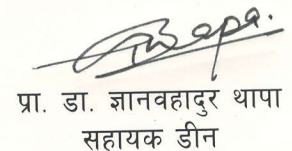 प्रा. डा. ज्ञानवहादुर थापा
सहायक डीन